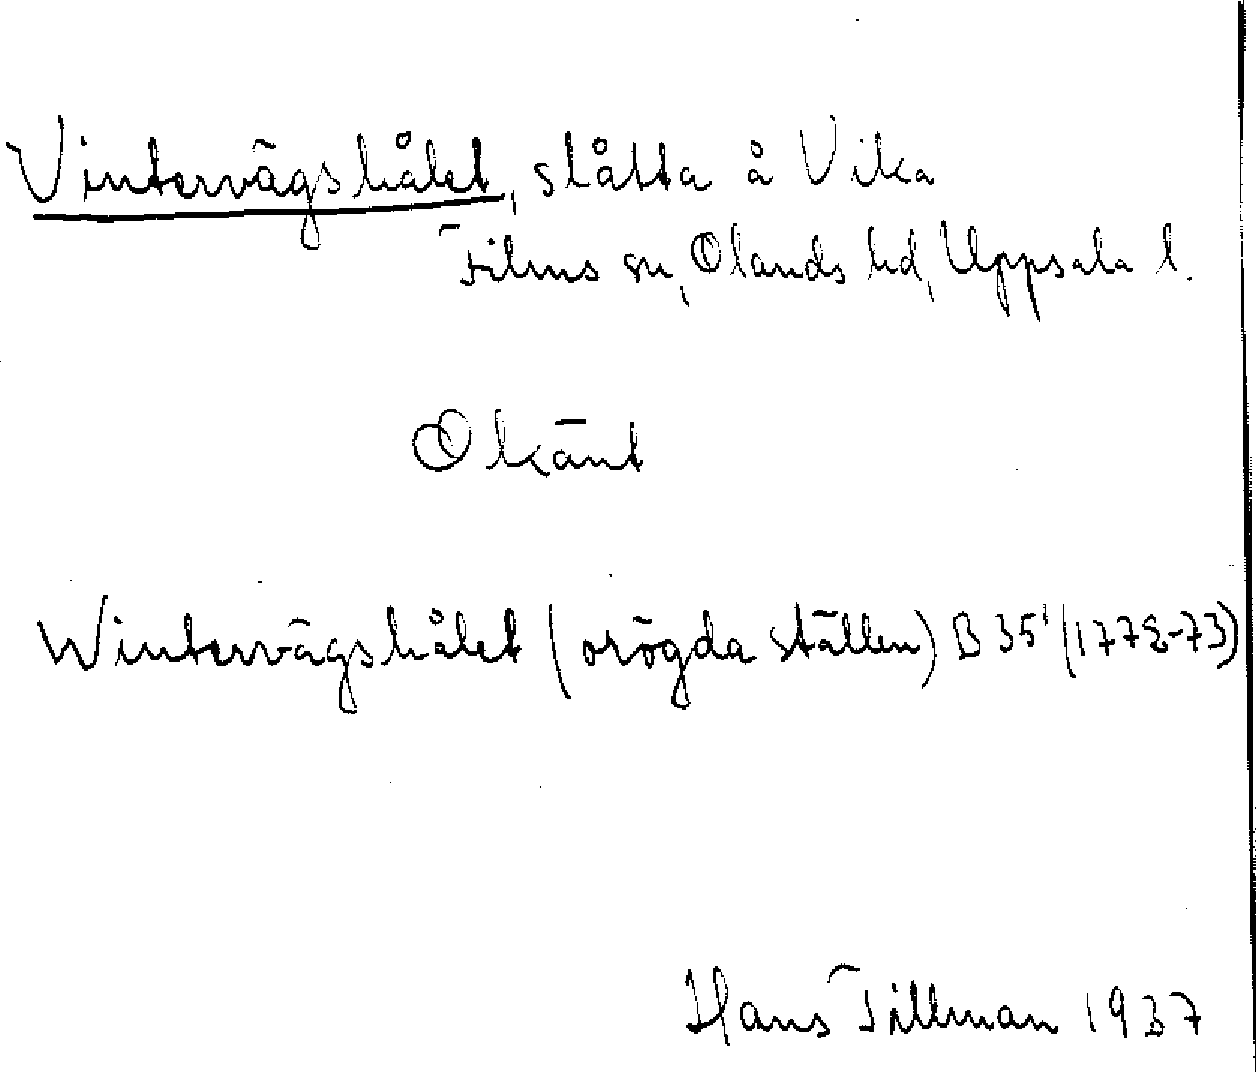 Vintervägshålet, slåtta å Vika
Films sn, Olands hd, Uppsala l.
Okänt
Wintervägshålet (orögda ställen) B 35¹ (1772-73)
Hans Tillman 1937